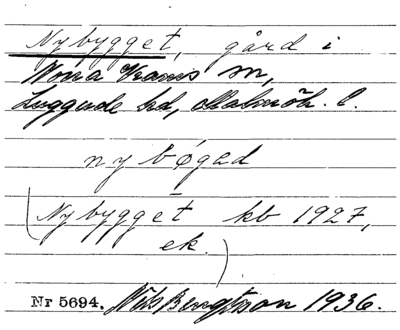 Nybygget, gård i
Norra Vrams sn,
Luggude hd, Malmöh. l.
nybøgəd
(Nybygget kb 1927,
ek.)
Nr 5694. Nils Bengtsson 1936.